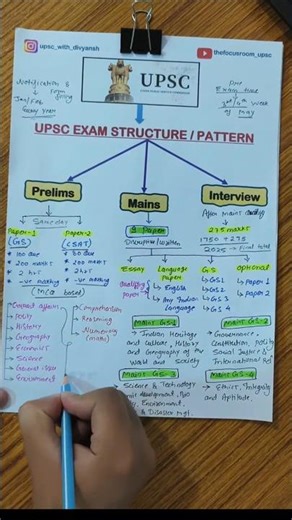 upsc_with_divyansh
thefocusroom_upsc
Notification &
form
Jan/Feb
every year
UPSC
Pre
Exam
3rd/4th week
of May
UPSC EXAM STRUCTURE / PATTERN
Prelims
Mains
Interview
SAME DAY
Paper-1
(GS)
* 100 que
* 200 marks
* 2 hr
* -ve marking
Paper-2
(CSAT)
* 80 que
* 200 marks
* 2 hr
* -ve marking
(MCQ based)
→ Current affairs
→ Polity
→ History
→ Geography
→ Economics
→ Science
→ Environment
→ Comprehension
→ Reasoning
→ Numeracy
(maths)
9 Paper
Descriptive/written
Essay
Language
paper
→ English
→ Any Indian
language
qualifying
paper
GS
→ GS1
→ GS2
→ GS3
→ GS4
Optional
→ Paper 1
→ Paper 2
After Mains
275 marks
1750 + 275
2025 → Final total
Mains GS-1
→ Indian Heritage
and culture, History
and Geography of the
World and Society
Mains GS-2
→ Governance,
Constitution, Polity
Social Justice &
International Rel
Mains GS-3
→ Science & Technology
Environment,
& Disaster mgt.
Mains GS-4
→ Ethics, Integrity
and Aptitude.